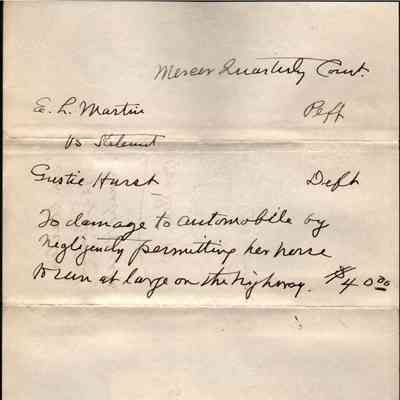 Mercer Quarterly Court
E. L. Martin Plff
vs Statement
Gustie Hurst Deft
To damage to automobile by
negligently permitting her horse
to run at large on the highway. $40.00